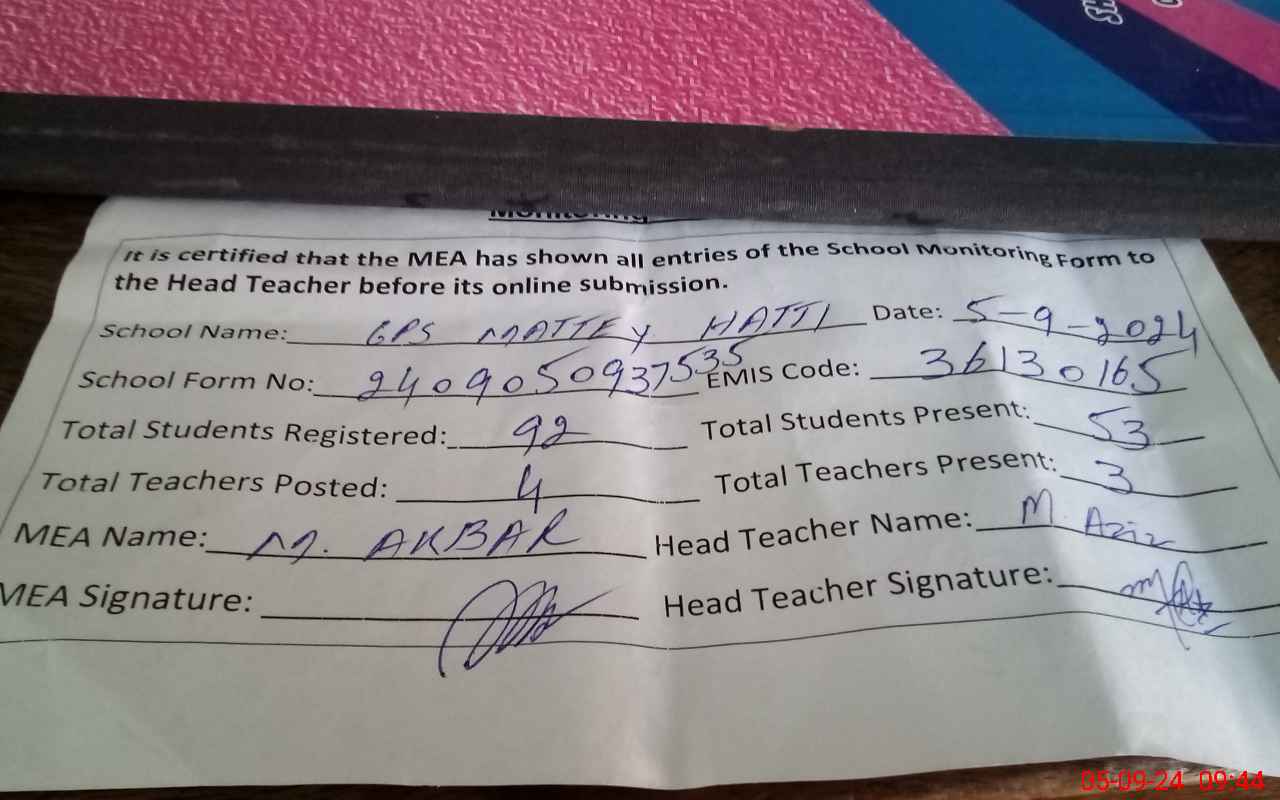 Monitoring
It is certified that the MEA has shown all entries of the School Monitoring Form to
the Head Teacher before its online submission.
School Name: GPS MATTEY HATTI Date: 5-9-2024
School Form No: 2409050937535 EMIS Code: 36130165
Total Students Registered: 92 Total Students Present: 53
Total Teachers Posted: 4 Total Teachers Present: 3
MEA Name: M. AKBAR Head Teacher Name: M. Aziz
MEA Signature: Head Teacher Signature:
05-09-24 09:44